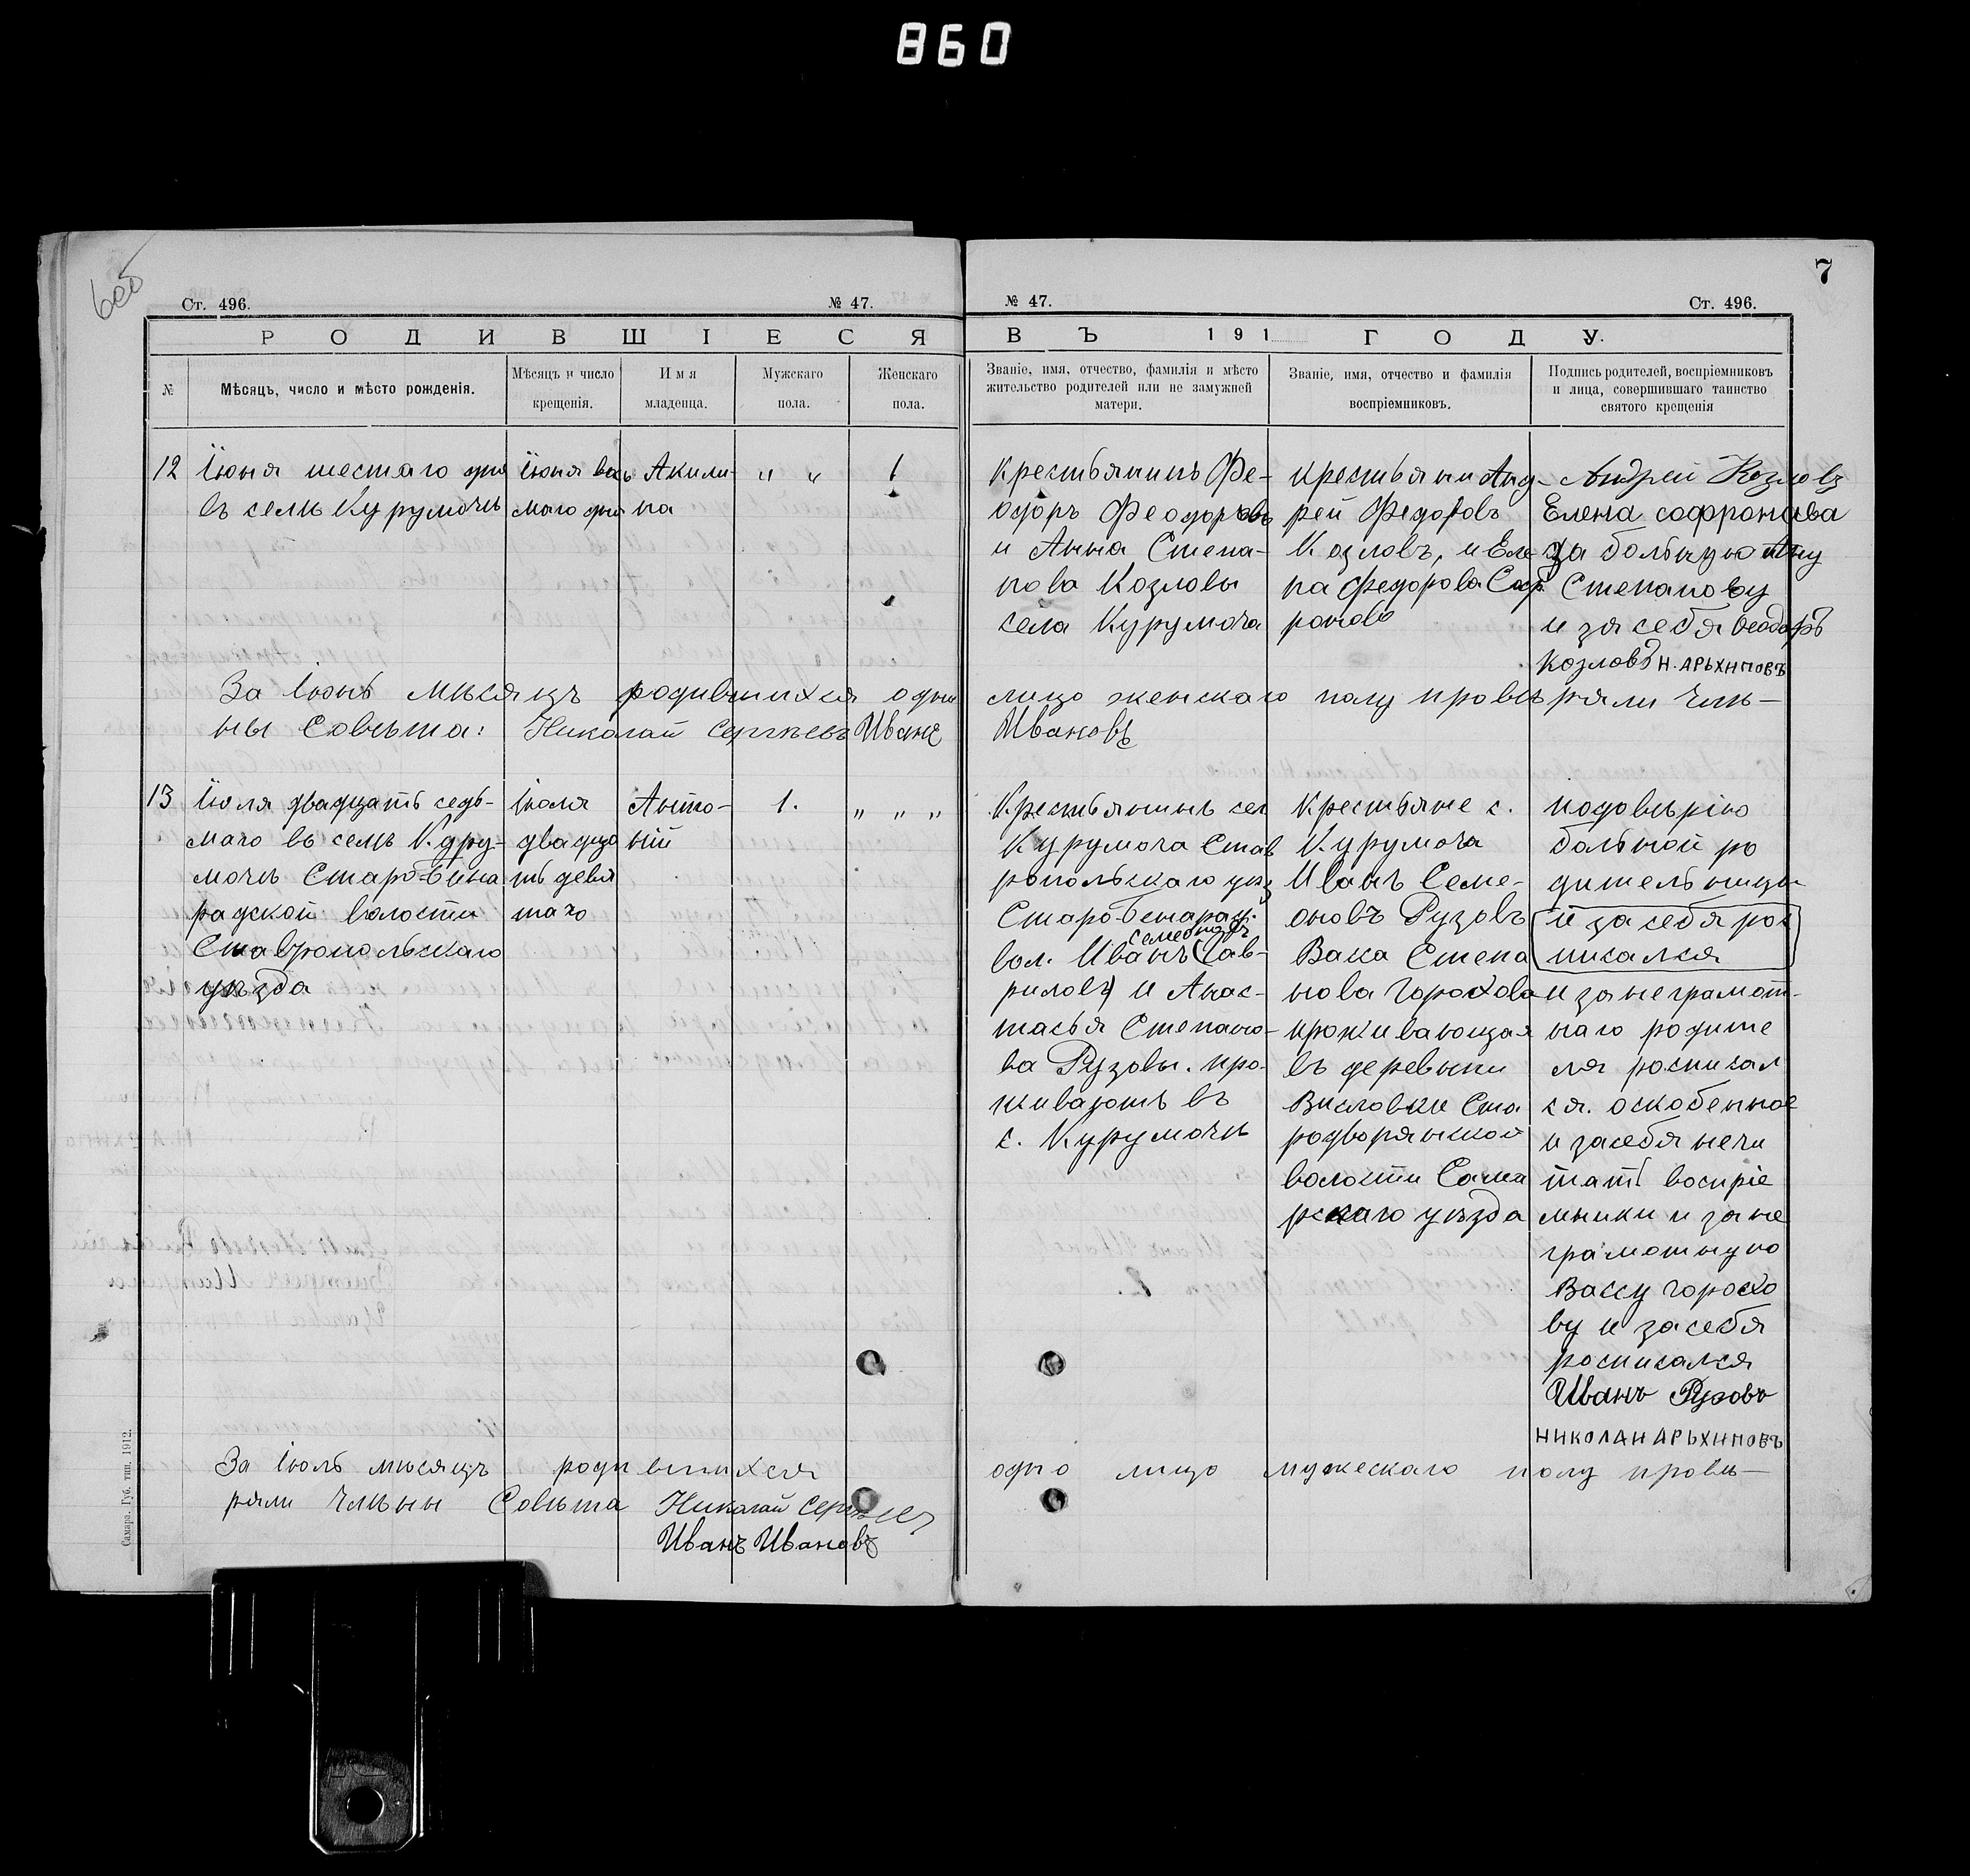 860
600
7
Ст. 496.
№ 47.
№ 47.
Ст. 496.
РОДИВШІЕСЯ
ВЪ 191 ГОДУ.
№
Мѣсяцъ, число и мѣсто рожденія.
Мѣсяцъ и число
крещенія.
Имя
младенца.
Мужскаго
пола.
Женскаго
пола.
Званіе, имя, отчество, фамилія и мѣсто
жительство родителей или не замужней
матери.
Званіе, имя, отчество и фамилія
воспріемниковъ.
Подпись родителей, воспріемниковъ
и лица, совершившаго таинство
святого крещенія
12
Іюня шестаго дня
въ селѣ Курумочѣ
Іюня вось
маго дня
Акили-
на
" "
1
Крестьянинъ Фе-
одоръ Феодоровъ
и Анна Степа-
нова Козловы
села Курумоча
крестьянин Анд-
рей Федоровъ
Козловъ, и Еле-
на Федорова Соф
ронова
Андрей Козловъ
Елена софронава
За больную Ану
Степанову
и за себя Өеодоръ
Козловъ Н. АРЬХИПОВЪ
За Іюнь мѣсяцъ родившихся одын лицо женскаго полу провѣряли Члѣ-
ны Совѣта: Николай Сергѣевъ Иванъ Ивановъ
13
Іюля двадцать седь-
маго въ селѣ Куру-
мочѣ Старо-Бина
радской волости
Ставропольскаго
уѣзда
Іюля
двадца
ть девя
таго
Анто-
ній
1.
" " "
Крестьянинъ сел
Курумоча Став
ропольскаго уѣз
Старо-Бинарад.
семеновъ
вол. Иванъ (Гав-
риловъ) и Анас-
тасья Степано-
ва Рузовы. про-
живаютъ въ
с. Курумочѣ
Крестьяне с.
Курумоча
Иванъ Семе-
оновъ Рузовъ
Васа Степа
нова Горохова
проживающая
въ деревыни
Висловки Ста
родворянской
волости Сама
рскаго уѣзда
подовѣрію
больной ро
дительницы
и за себя рос
писался
и за неграмот-
наго родите
ля росписал
ся. оскобенное
и засебя нечи
тать воспріе
мники и зане
грамотную
Вассу горохо
ву и засебя
росписался
Иванъ Рузовъ
НИКОЛАН АРЬХИПОВЪ
За Іюль мѣсяцъ родившихся одно лицо мужескаго полу провѣ-
ряли Члѣны Совѣта Николай Сергѣев
Иванъ Ивановъ
Самара. Губ. тип. 1912.